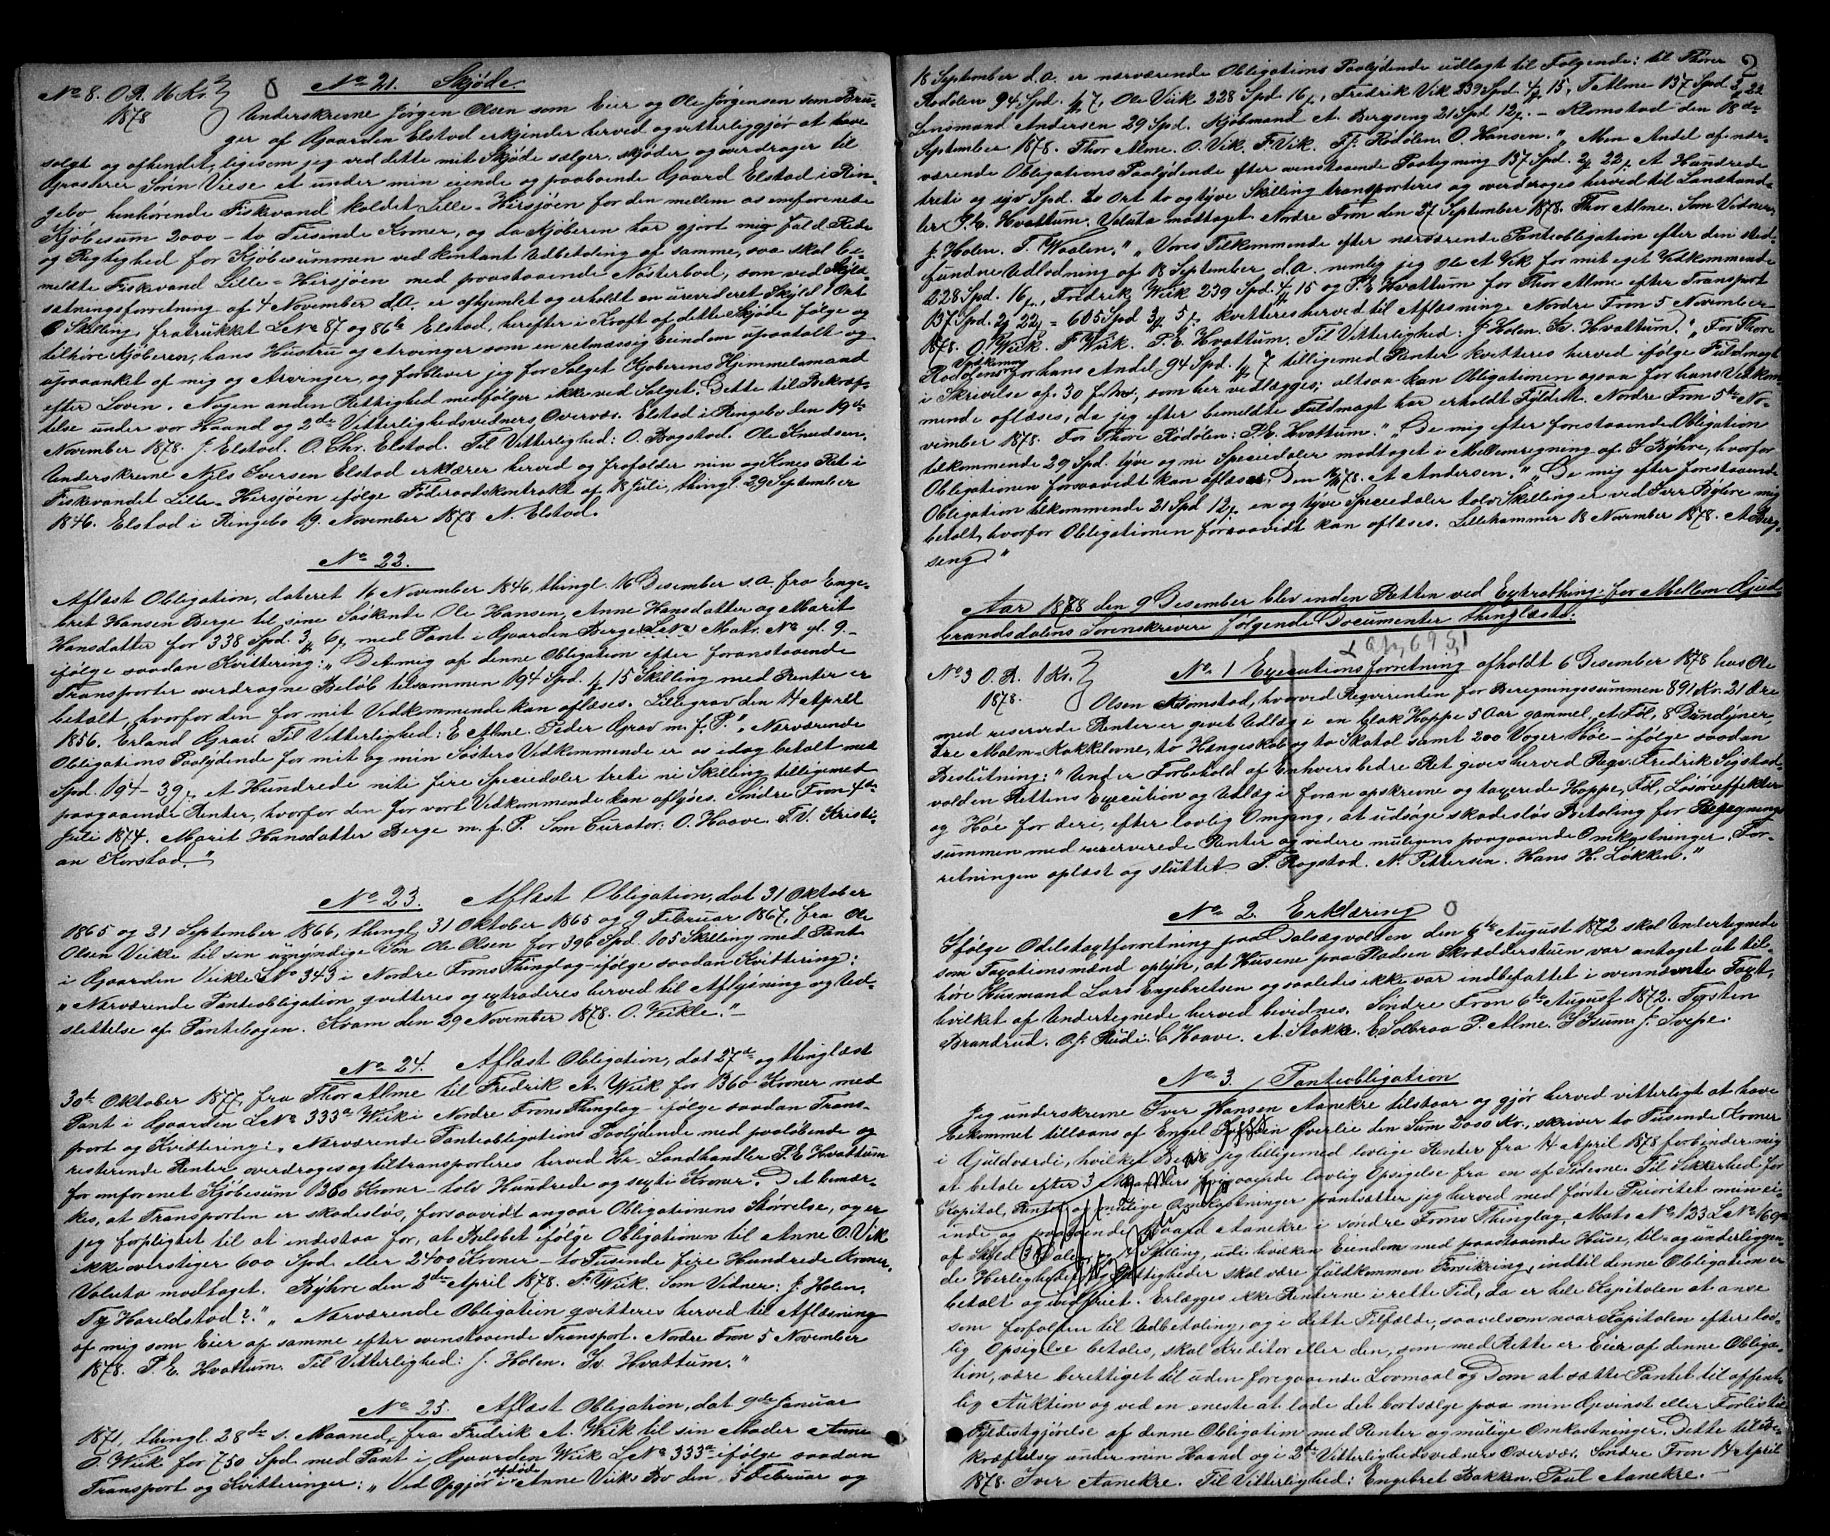 No 8. O. R. 16 Kr.
1878
No 21. Skjøde.
Underskrevne Jörgen Olsen som Eier og Ole Jörgensen som Bru-
ger af Gaarden Elstad erkjender herved og vitterliggjør at have
solgt og afhendet, ligesom jeg ved dette mit Skjøde sælger, skjøder og overdrager til
Grosserer Sven Viese et under min eiende og paaboende Gaard Elstad i Rin-
gebo henhørende Fiskvand kaldet Lille-Hirsjøen for den mellem os omforenede
Kjøbesum 2000 – to Tusende Kroner, og da Kjøberen har gjort mig fuld Rede
og Rigtighed for Kjøbesummen ved kontant Udbetaling af samme, saa skal be-
meldte Fiskevand Lille-Hirsjøen med paastaaende Nøsterbod, som ved Skyld-
sætningsforretning af 4 November d.A. er afhjemlet og erholdt en urevideret Skyld 1 Ort
6 Skilling, fratrukket L No 87 og 86b Elstad, herefter i Kraft af dette Skjøde følge og
tilhøre Kjøberen, hans Hustru og Arvinger som en retmæssig Eiendom upaatalt og
upaaanket af mig og Arvinger, og forbliver jeg for Salget Kjøberens Hjemmelsmand
efter Loven. Nogen anden Rettighed medfølger ikke ved Salget. Dette til Bekræf-
telse under vor Haand og 2de Vitterlighedsvidners Overvær. Elstad i Ringebo den 19de
November 1878. J. Elstad. O. Chr. Elstad. Til Vitterlighed: O. Bagstad. Ole Knudsen.
Underskrevne Nils Iversen Elstad erklærer herved og frafalder min og Kones Ret i
Fiskvandet Lille-Hirsjøen ifølge Föderaadskontrakt af 18 Juli, thingl. 29 September
1846. Elstad i Ringebo 19. November 1878 N. Elstad.
No 22.
Aflæst Obligation, dateret 16 November 1846, thingl. 16 Desember s.A. fra Enge-
bret Hansen Berge til sine Søskende Ole Hansen, Anne Hansdatter og Marit
Hansdatter for 338 Spd. 3 6 med Pant i Gaarden Berge L No Matr. No gl. 9 –
ifølge saadan Kvittering: „Det mig af denne Obligation efter foranstaaende
Transporter overdragne Beløb tilsammen 194 Spd. 15 Skilling med Renter er
betalt, hvorfor den for mit Vedkommende kan aflæses. Lillegrav den 14 April
1856. Erland Grav. Til Vitterlighed: E Alme. Peder Grav m. f. P." „Nærværende
Obligations Paalydende for mit og min Søsters Vedkommende er os idag betalt med
Spd. 194 – 39, Et Hundrede niti fire Speciedaler treti ni Skilling tilligemed
paagaaende Renter, hvorfor den for vort Vedkommende kan aflyses. Søndre Fron 4de
Juli 1874. Marit Hansdatter Berge m. f. P. Som Curator: O. Haave. T. V. Kristi-
an Korstad."
No 23. Aflæst Obligation, dat 31 Oktober
1865 og 21 September 1866, thingl. 31 Oktober 1865 og 9 Februar 1867, fra Ole
Olsen Veikle til sin umyndige Søn Ole Olsen for 396 Spd. 105 Skilling med Pant
i Gaarden Veikle L No 343 i Nordre Frons Thinglag – ifølge saadan Kvittering:
„Nærværende Panteobligation qvitteres og extraderes herved til Aflysning og Ud-
slettelse af Pantebogen. Kvam den 29 November 1878. O. Veikle." –
No 24. Aflæst Obligation, dat 27de og thinglæst
30te Oktober 1877, fra Thor Alme til Fredrik A. Wiik for 1360 Kroner med
Pant i Gaarden L No 333a Wiik i Nordre Frons Thinglag – ifølge saadan Trans-
port og Kvittering: „Nærværende Panteobligations Paalydende med paaløbende og
resterende Renter overdrages og tiltransporteres herved Hr. Landhandler P. E. Hvattum
for omforenet Kjøbesum 1260 Kroner – tolv Hundrede og sexti Kroner. Det bemær-
kes, at Transporten er skadesløs, forsaavidt angaar Obligationens Størrelse, og er
jeg forpligtet til at indestaa for, at Beløbet ifølge Obligationen til Anne O. Vik
ikke overstiger 600 Spd. eller 2400 Kroner – to Tusende fire Hundrede Kroner.
Valuta modtaget. Byhre den 2den April 1878. F. Wiik. Som Vidner: J. Holen.
Tj Harildstad?." „Nærværende Obligation qvitteres herved til Aflæsning
af mig som Eier af samme efter ovenstaaende Transport. Nordre Fron 5 November
1878. P. E. Hvattum. Til Vitterlighed: J. Holen. Iv. Hvattum."
No 25. Aflæst Obligation, dat 9de Januar
1871, thingl. 28de s. Maaned, fra Fredrik A. Wiik til sin Moder Anne
O Wiik for 750 Spd. med Pant i Gaarden Wiik L No 333a – ifølge saadan
Transport og Kvitteringer: „Ved Opgjør i afdøde Anne Viiks Bo den 5 Februar og
2
18 September d.A. er nærværende Obligations Paalydende udlagt til Følgende: til Thore
Rødølen 94 Spd. 7, Ole Viik 228 Spd 16, Fredrik Vik 239 Spd. 15, T Alme 137 Spd. 2 22
Lensmand Andersen 29 Spd. Kjøbmand A. Bergseng 21 Spd 12. – Klomstad den 18de
September 1878. Thor Alme. O. Vik. F Vik. Rødølen. O. Hansen." „Min Andel af nær-
værende Obligations Paalydende efter ovenstaaende Paategning 137 Spd. 2 22, Et Hundrede
treti og syv Spd. to Ort to og tyve Skilling transporteres og overdrages herved til Landhand-
ler P. E. Hvattum. Valuta modtaget. Nordre Fron den 27 September 1878. Thor Alme. Som Vidner:
J. Holen. T. Waalen." „Vores Tilkommende efter nærværende Panteobligation efter den sted-
fundne Udlodning af 18 September d.A. nemlig jeg Ole A Vik for mit eget Vedkommende
228 Spd. 16, Fredrik Wiik 239 Spd. 15 og P. E. Hvattum for Thor Alme efter Transport
137 Spd. 2 22 = 605 Spd 3 5 kvitteres herved til Aflæsning. Nordre Fron 5 November
1878. O. Wiik. F. Wiik. P. E. Hvattum. Til Vitterlighed: J. Holen. Iv. Hvattum." „For Thore
Rødølens Vedkomme for hans Andel 94 Spd. 7 tilligemed Renter kvitteres herved ifølge Fuldmagt
i Skrivelse af 30 f. M., som her vedlægges; altsaa kan Obligationen ogsaa for hans Vedkom-
mende aflæses, da jeg efter bemeldte Fuldmagt har erholdt Fyldest. Nordre Fron 5te No-
vember 1878. For Thore Rødølen: P. E. Hvattum." „De mig efter foranstaaende Obligation
tilkommende 29 Spd. tyve og ni Speciedaler modtaget i Mellemregning af I Byhre, hvorfor
Obligationen forsaavidt kan aflæses. Den 78. A Andersen." „De mig efter foranstaaende
Obligation tilkommende 21 Spd 12 en og tyve Speciedaler tolv Skilling er ved Iver Byhre mig
betalt, hvorfor Obligationen forsaavidt kan aflæses. Lillehammer 18 November 1878. A Berg-
seng"
Aar 1878 den 9 Desember blev inden Retten ved Extrathing for Mellem Gud-
brandsdalens Sorenskriveri følgende Documenter thinglæste:
No 3 O. R. 1 Kr.
1878.
No 1 Executionsforretning afholdt 6 Desember 1878 hos Ole
Olsen Klomstad, hvorved Requirenten for Beregningssummen 891 Kr. 21 Øre
med reserverede Renter er givet Udlæg i en blak Hoppe 5 Aar gammel, et Føl, 8 Bundyner,
tre Malm-Kakkelovne, to Hængeskab og to Skatol samt 200 Voger Høe – ifølge saadan
Beslutning: „Under Forbehold af Enhvers bedre Ret gives herved Reqv. Fredrik Sigstad-
volden Rettens Execution og Udlæg i foran opskrevne og taxerede Hoppe, Føl, Løsøreeffekter
og Høe for deri, efter lovlig Omgang, at udsøge skadesløs Betaling for Beregnings-
summen med reserverede Renter og videre muligens paagaaende Omkostninger. For-
retningen oplæst og sluttet. T. Rogstad. N. Pettersen. Hans H. Løkken."
No 2. Erklæring
Ifølge Odelstagtforretning paa Dalsegvolden den 6te August 1872 skal Undertegnede
som Taxationsmænd oplyse, at Husene paa Pladsen Skrædderstuen var antaget at til-
høre Husmand Lars Engebretsen og saaledes ikke var indbefattet i ovennævnte Taxt,
hvilket af Undertegnede herved bevidnes. Søndre Fron 6te August 1872. Torsten
Brandrud. O. Rudi. C Haave. A. Stokke. E Solbraa P. Alme. I Isum. J. Svepe.
No 3. Panteobligation
Jeg underskrevne Iver Hansen Aanekre tilstaar og gjør herved vitterligt at have
bekommet tillaans af Engel Iversen Øverlie den Sum 2000 Kr., skriver to Tusende Kroner
i Guldværdi, hvilket Beløb jeg tilligemed lovlige Renter fra 14 April 1878 forbinder mig
at betale efter 3 Maaneders foregaaende lovlig Opsigelse fra en af Siderne. Til Sikkerhed for
Kapital, Renter og mulige Omkostninger pantsætter jeg herved med første Prioritet min ei-
ende og paaboende Gaard Aanekre i Søndre Frons Thinglag, Matr. No 123. L No 169a
af Skyld 3 Daler og 2 Skilling, udi hvilken Eiendom med paastaaende Huse, til- og underliggen-
de Herligheder og Rettigheder skal være fuldkommen Forsikring, indtil denne Obligation er
betalt og indfriet. Erlægges ikke Renterne i rette Tid, da er hele Kapitalen at anse
som forfalden til Udbetaling, og i dette Tilfælde, saavelsom naar Kapitalen efter lov-
lig Opsigelse betales, skal Kreditor eller den, som med Rette er Eier af denne Obliga-
tion, være berettiget til uden foregaaende Lovmaal og Dom at sætte Pantet til offent-
lig Auktion og ved en eneste at lade det bortsælge paa min Gevinst eller Forlis til
Fyldestgjørelse af denne Obligation med Renter og mulige Omkostninger. Dette til Be-
kræftelse under min Haand og i 2de Vitterlighedsvidners Overvær. Søndre Fron 14 April
1878. Iver Aanekre. Til Vitterlighed: Engebret Bakken. Paul Aanekre. –